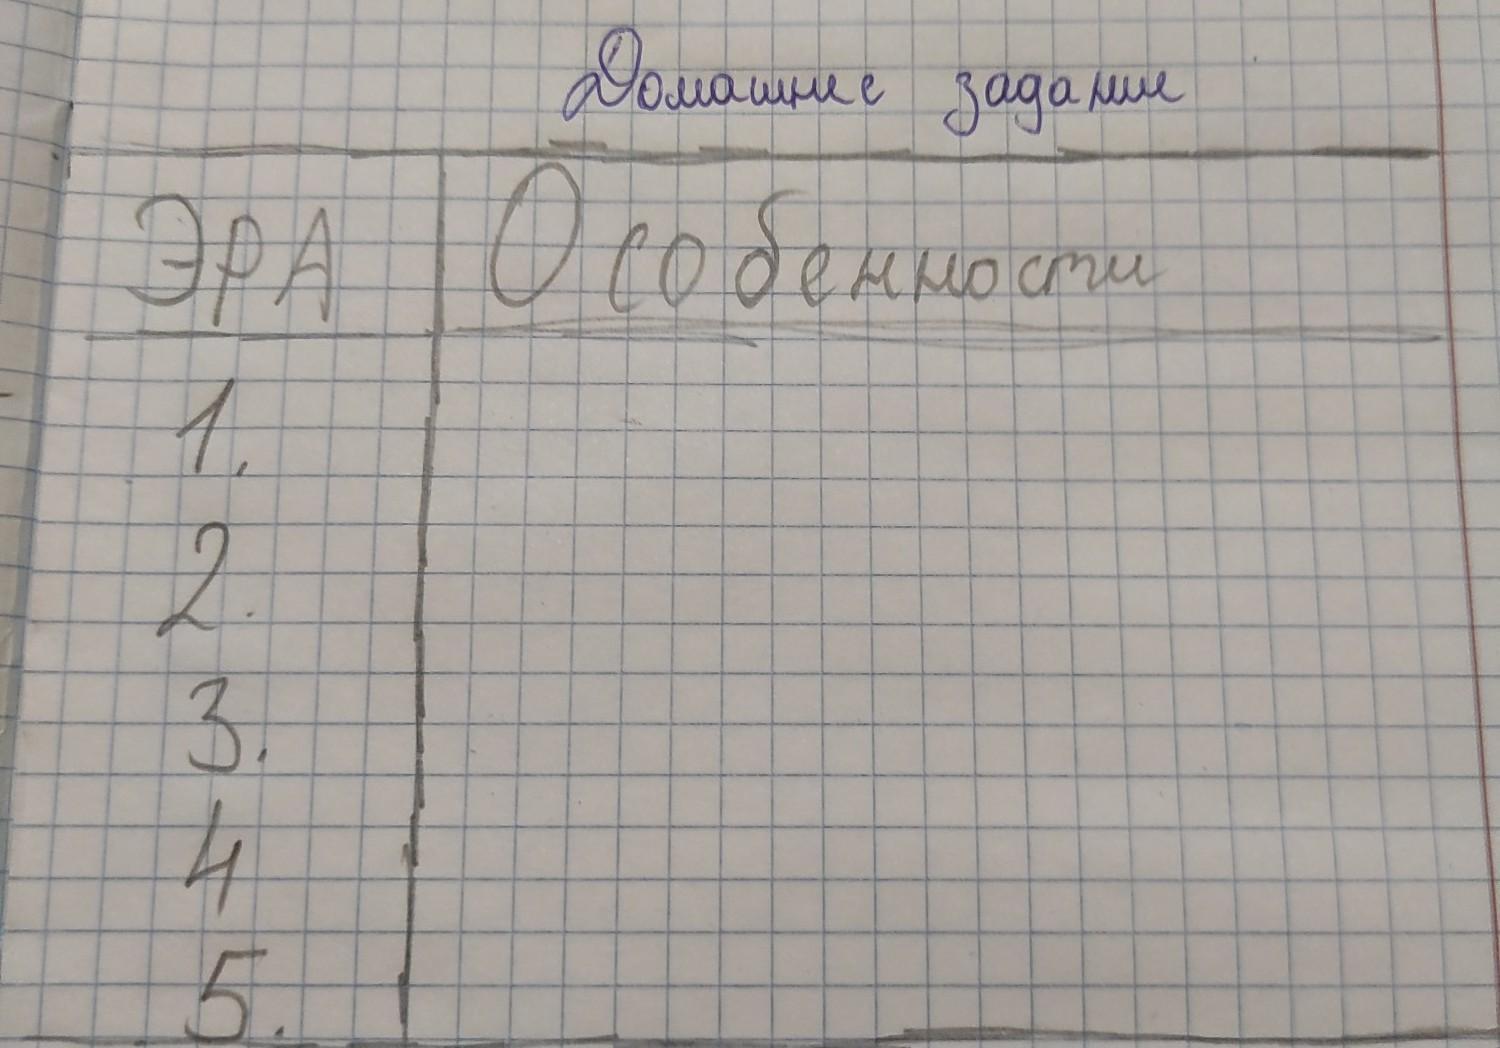 Домашнее задание
ЭРА Особенности
1.
2.
3.
4
5.